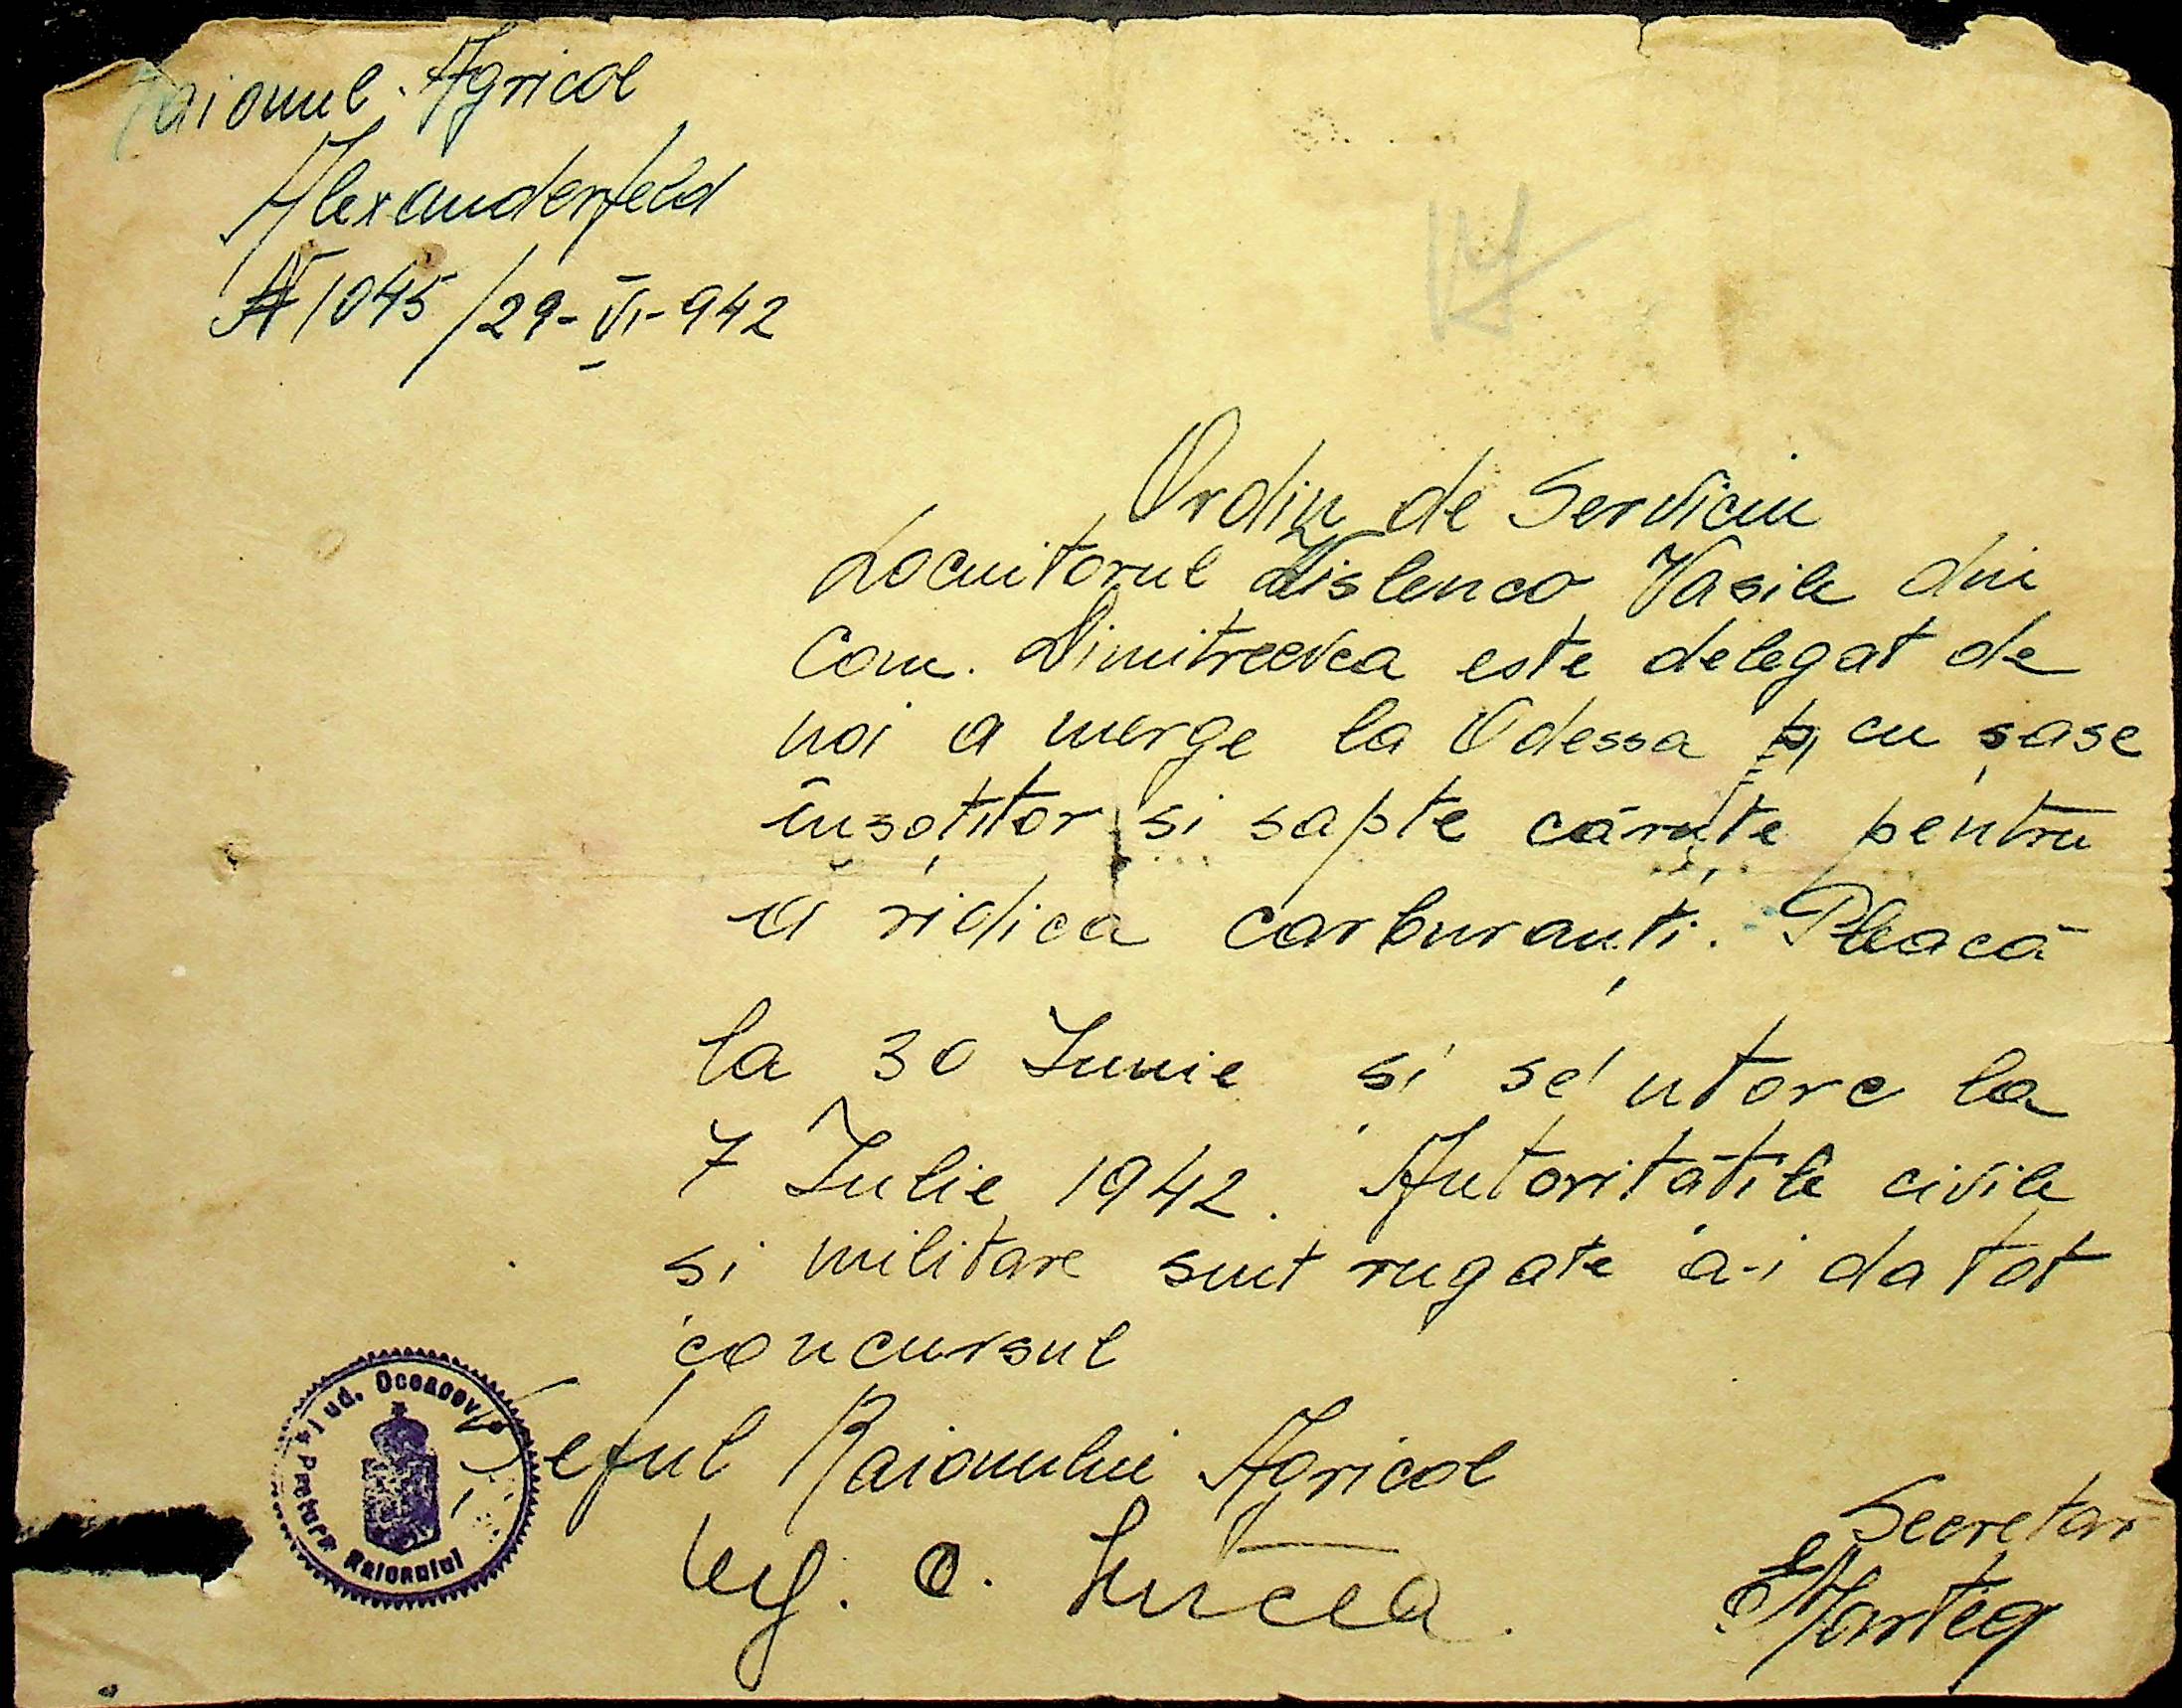 Raionul Agricol
Alexanderfeld
№ 1045/29-VI-942
Ordin de Serviciu
Locuitorul Vasile din
Com. Dimitreevca este delegat de
noi a merge la Odessa cu șase
însoțitor și sapte căruțe pentru
a ridica carburanți. Pleacă
la 30 Iunie și se ntorc la
7 Iulie 1942. Autoritățile civile
și militare sunt rugate a-i da tot
concursul
Șeful Raionului Agricol
Secretar
Jud. Oceacov
Pretura Raionului